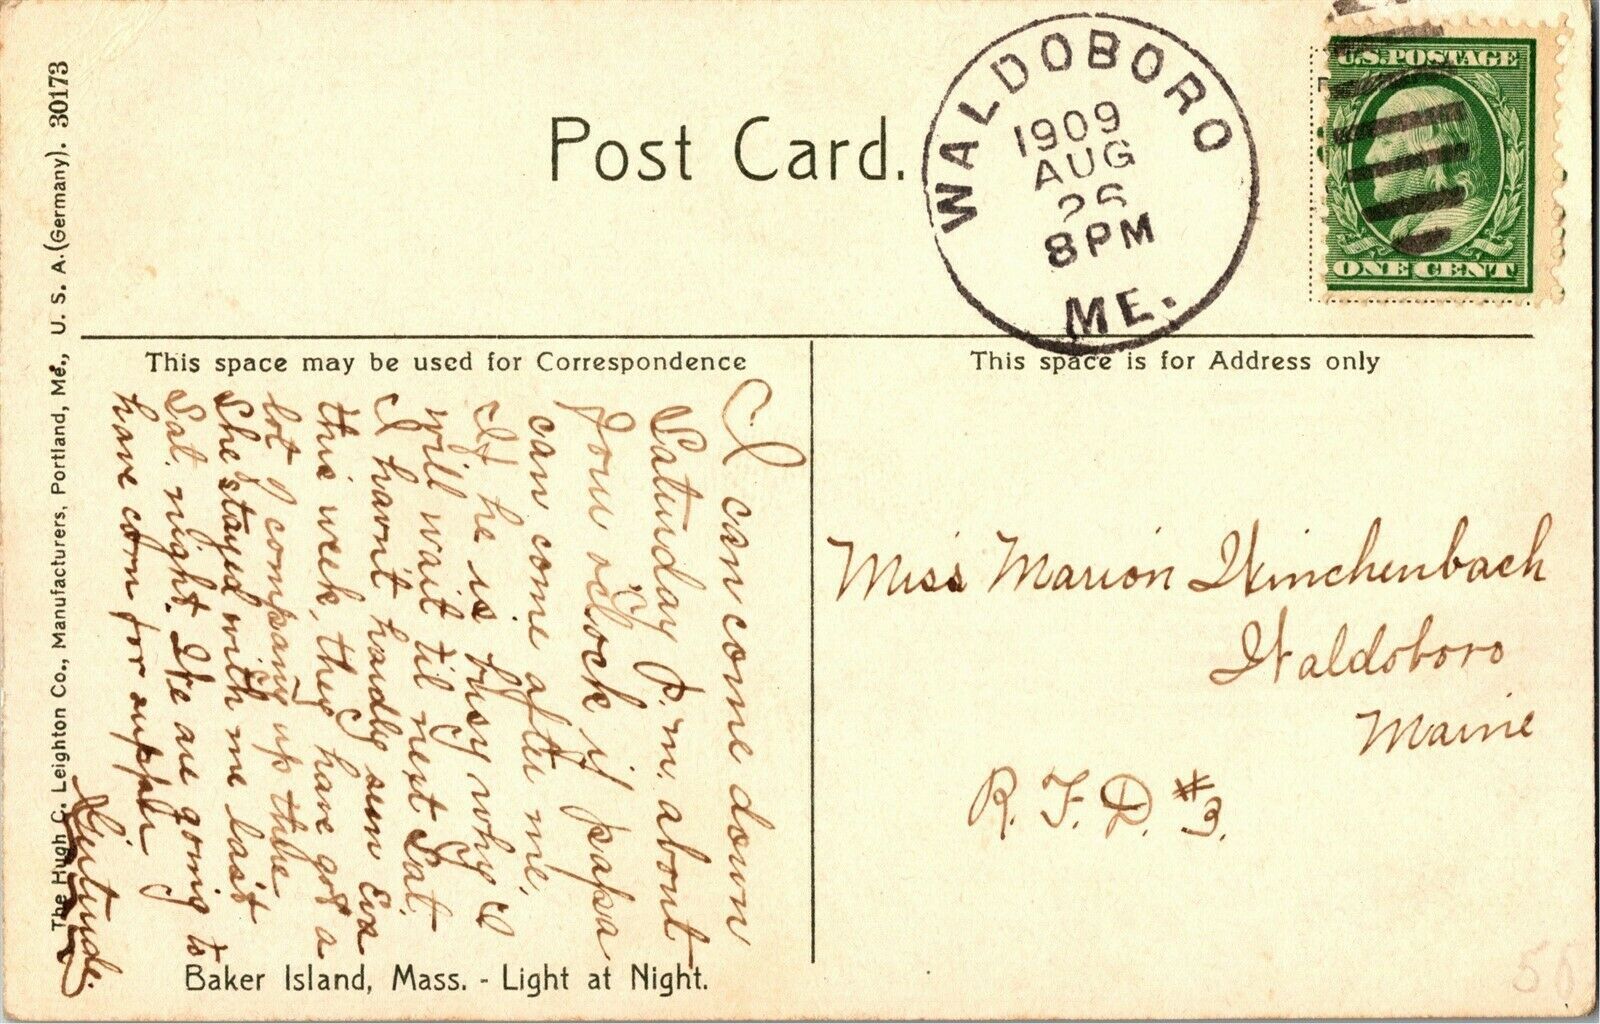 The Hugh C. Leighton Co., Manufacturers, Portland, Me., U. S. A. (Germany). 30173
Post Card.
WALDOBORO
1909
AUG
26
8 PM
ME.
U.S. POSTAGE
ONE CENT
This space may be used for Correspondence
This space is for Address only
I can come down
Saturday P.m. about
four o'clock if papa
can come after me.
If he is busy why I
will wait til next Sat.
I havn't hardly seen Eva
this week, they have got a
lot of company up there
She stayed with me last
Sat. night. We are going to
have corn for supper
Gertrude.
Miss Marion Winchenbach
Waldoboro
Maine
R. F. D. #3.
Baker Island, Mass. - Light at Night.
50